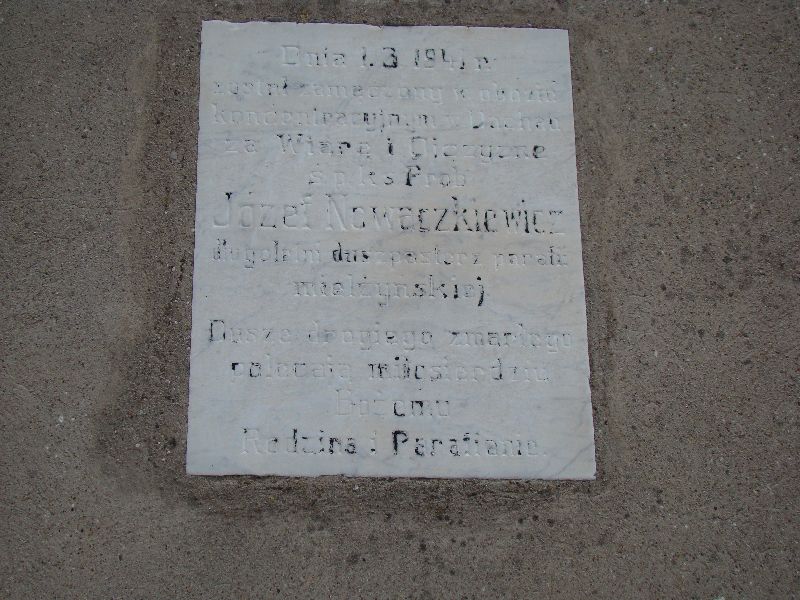 Dnia 1.3 1941 r.
został zamęczony w obozie
koncentracyjnym w Dachau
za Wiarę i Ojczyznę
ś.p. ks. Prob.
Józef Nowaczkiewicz
długoletni duszpasterz parafii
mielżyńskiej.
Duszę drogiego zmarłego
polecają miłosierdziu
Bożemu
Rodzina i Parafianie.